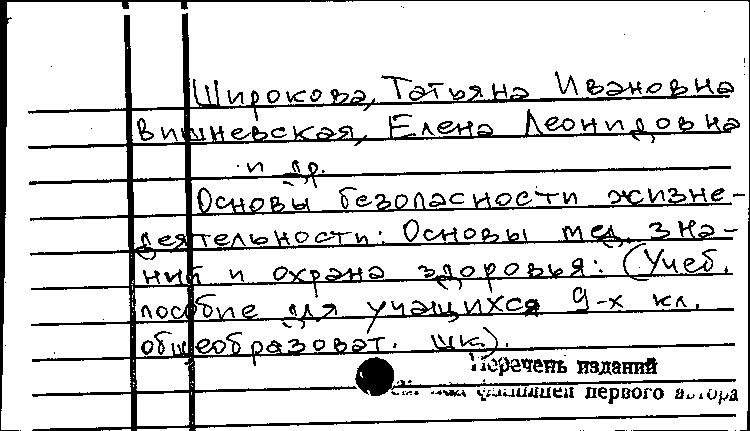 Широкова, Татьяна Ивановна
Вишневская, Елена Леонидовна
и др.
Основы безопасности жизне-
деятельности: Основы мед. зна-
ний и охрана здоровья: (Учеб.
пособие для учащихся 9-х кл.
общеобразоват. шк.).
Перечень изданий
первого автора